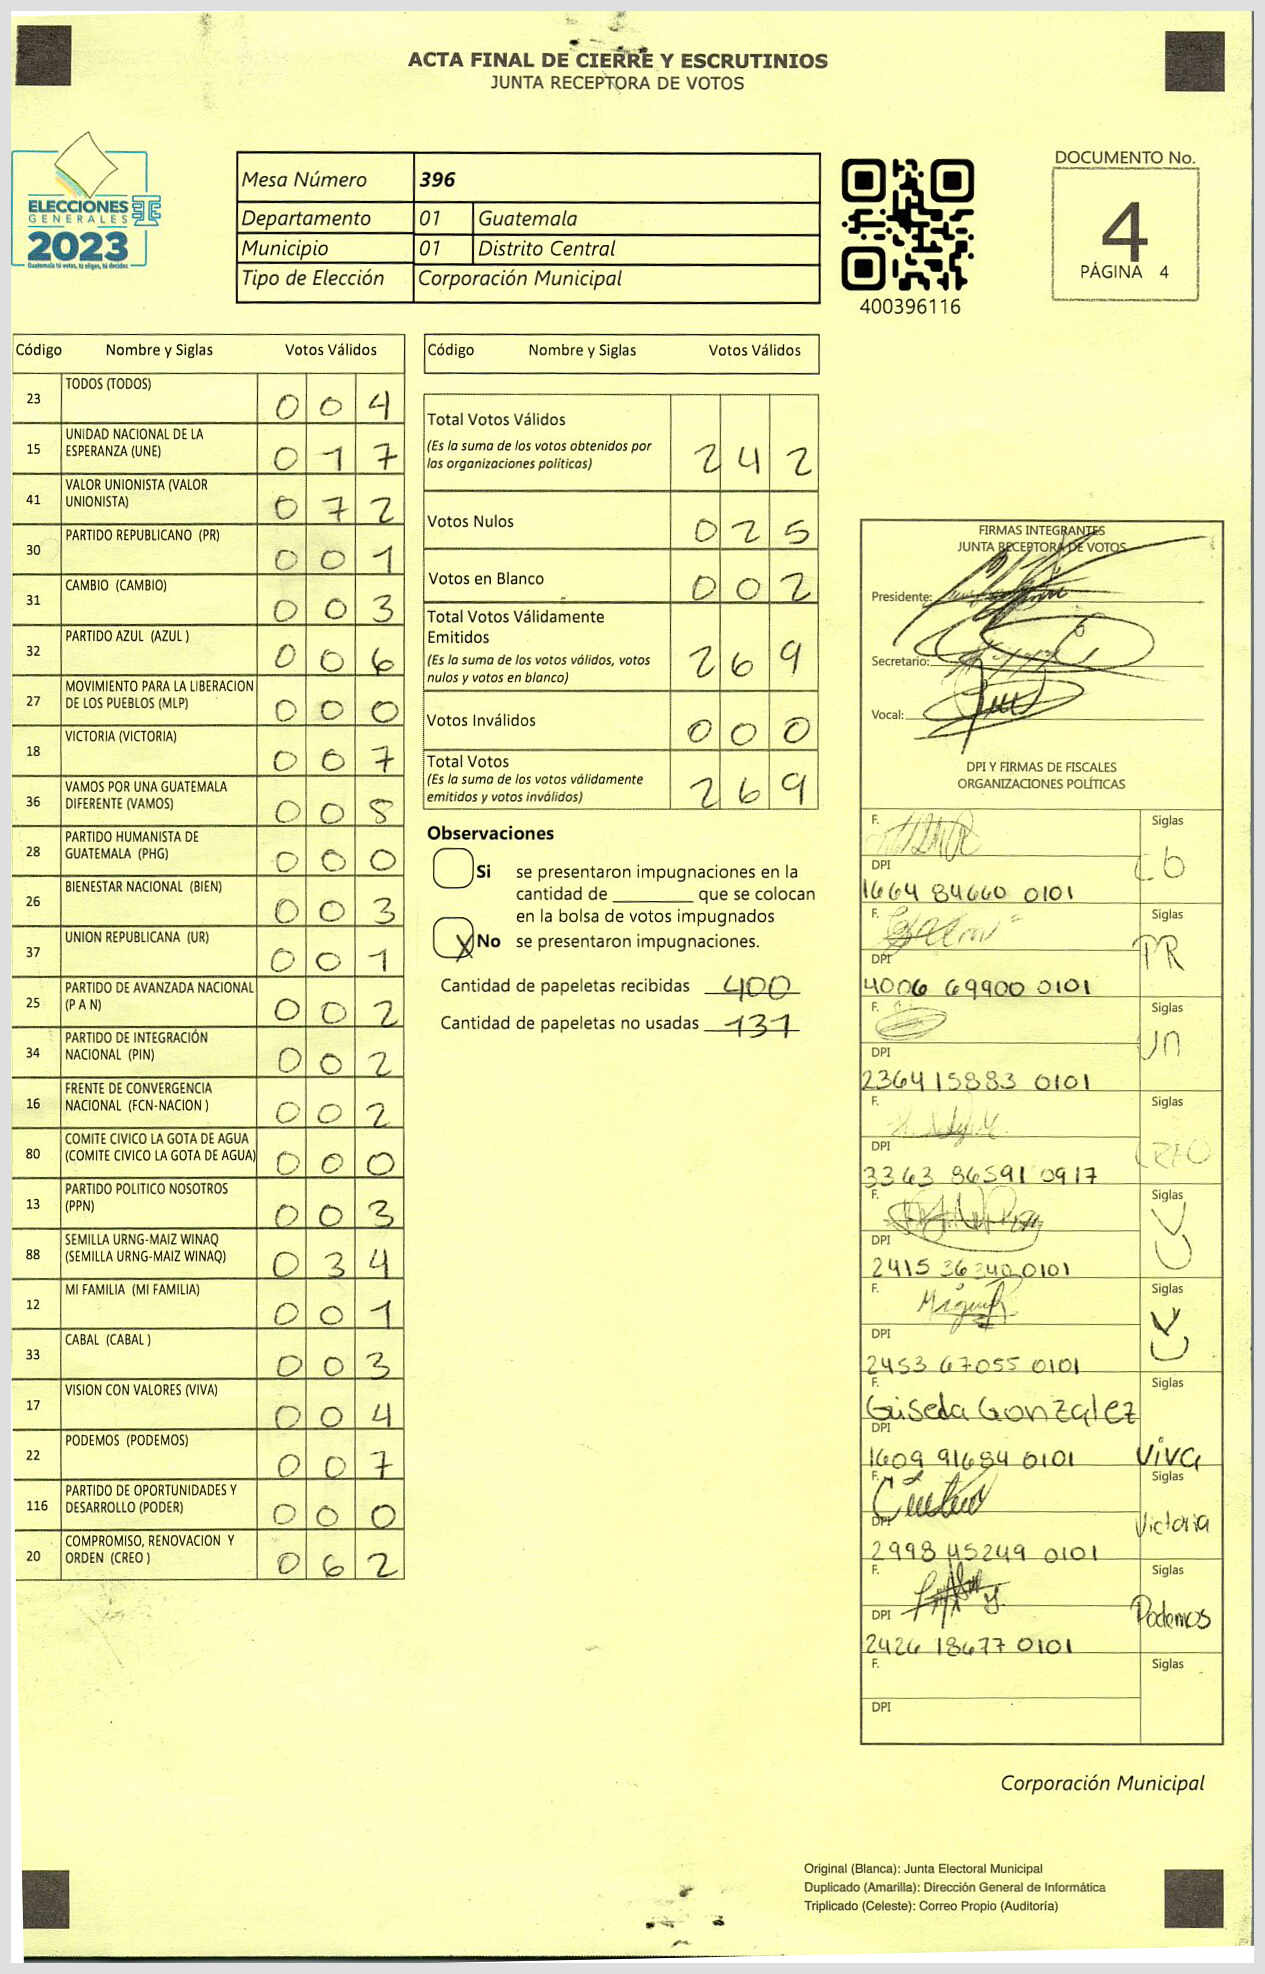 ACTA FINAL DE CIERRE Y ESCRUTINIOS
JUNTA RECEPTORA DE VOTOS
ELECCIONES
GENERALES
2023
Guatemala tú votas, tú eliges, tú decides
Mesa Número 396
Departamento 01 Guatemala
Municipio 01 Distrito Central
Tipo de Elección Corporación Municipal
400396116
DOCUMENTO No.
4
PÁGINA 4
Código Nombre y Siglas Votos Válidos
23 TODOS (TODOS) 0 0 4
15 UNIDAD NACIONAL DE LA
ESPERANZA (UNE) 0 1 7
41 VALOR UNIONISTA (VALOR
UNIONISTA) 0 7 2
30 PARTIDO REPUBLICANO (PR) 0 0 1
31 CAMBIO (CAMBIO) 0 0 3
32 PARTIDO AZUL (AZUL ) 0 0 6
27 MOVIMIENTO PARA LA LIBERACION
DE LOS PUEBLOS (MLP) 0 0 0
18 VICTORIA (VICTORIA) 0 0 7
36 VAMOS POR UNA GUATEMALA
DIFERENTE (VAMOS) 0 0 8
28 PARTIDO HUMANISTA DE
GUATEMALA (PHG) 0 0 0
26 BIENESTAR NACIONAL (BIEN) 0 0 3
37 UNION REPUBLICANA (UR) 0 0 1
25 PARTIDO DE AVANZADA NACIONAL
(P A N) 0 0 2
34 PARTIDO DE INTEGRACIÓN
NACIONAL (PIN) 0 0 2
16 FRENTE DE CONVERGENCIA
NACIONAL (FCN-NACION ) 0 0 2
80 COMITE CIVICO LA GOTA DE AGUA
(COMITE CIVICO LA GOTA DE AGUA) 0 0 0
13 PARTIDO POLITICO NOSOTROS
(PPN) 0 0 3
88 SEMILLA URNG-MAIZ WINAQ
(SEMILLA URNG-MAIZ WINAQ) 0 3 4
12 MI FAMILIA (MI FAMILIA) 0 0 1
33 CABAL (CABAL ) 0 0 3
17 VISION CON VALORES (VIVA) 0 0 4
22 PODEMOS (PODEMOS) 0 0 7
116 PARTIDO DE OPORTUNIDADES Y
DESARROLLO (PODER) 0 0 0
20 COMPROMISO, RENOVACION Y
ORDEN (CREO ) 0 6 2
Código Nombre y Siglas Votos Válidos
Total Votos Válidos
(Es la suma de los votos obtenidos por
las organizaciones políticas) 2 4 2
Votos Nulos 0 2 5
Votos en Blanco 0 0 2
Total Votos Válidamente
Emitidos
(Es la suma de los votos válidos, votos
nulos y votos en blanco) 2 6 9
Votos Inválidos 0 0 0
Total Votos
(Es la suma de los votos válidamente
emitidos y votos inválidos) 2 6 9
Observaciones
Si se presentaron impugnaciones en la
cantidad de ________ que se colocan
en la bolsa de votos impugnados
X No se presentaron impugnaciones.
Cantidad de papeletas recibidas 400
Cantidad de papeletas no usadas 131
FIRMAS INTEGRANTES
JUNTA RECEPTORA DE VOTOS
Presidente:
Secretario:
Vocal:
DPI Y FIRMAS DE FISCALES
ORGANIZACIONES POLÍTICAS
F. Siglas
DPI
1664 84660 0101
F. Siglas
DPI PR
4006 69900 0101
F. Siglas
DPI
2364 15883 0101
F. Siglas
DPI CREO
3363 86591 0917
F. Siglas
DPI
2415 36340 0101
F. Siglas
DPI
2453 67055 0101
F. Siglas
Guisela Gonzalez
DPI
1609 91684 0101 VIVA
F. Siglas
DPI Victoria
2998 45249 0101
F. Siglas
DPI Podemos
2426 18677 0101
F. Siglas
DPI
Corporación Municipal
Original (Blanca): Junta Electoral Municipal
Duplicado (Amarilla): Dirección General de Informática
Triplicado (Celeste): Correo Propio (Auditoría)